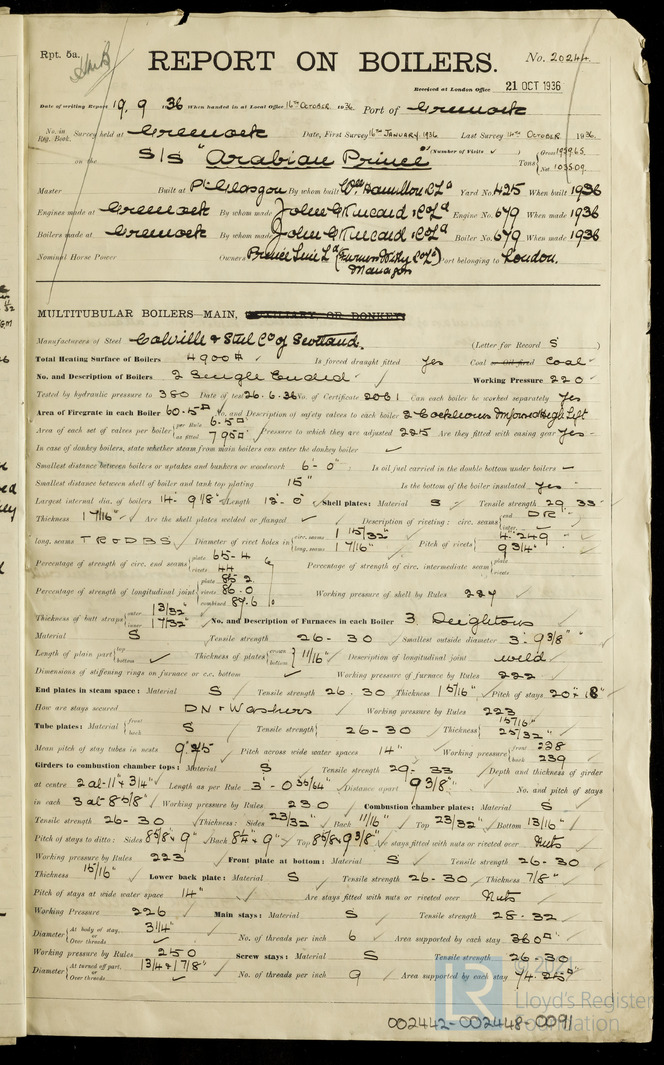 Rpt. 5a.
REPORT ON BOILERS.
No. 20244
Received at London Office 21 OCT 1936
Date of writing Report 19. 9 1936 When handed in at Local Office 16th OCTOBER 1936 Port of Greenock
No. in Reg. Book. Survey held at Greenock Date, First Survey 16th JANUARY 1936 Last Survey OCTOBER 1936
on the S/S "Arabian Prince" (Number of Visits ) Tons { Gross 1959.65 Net 1035.09
Master Built at Pt Glasgow By whom built Wm Hamilton & Co Ld Yard No. 425 When built 1936
Engines made at Greenock By whom made John G Kincaid & Co Ld Engine No. 679 When made 1936
Boilers made at Greenock By whom made John G Kincaid & Co Ld Boiler No. 679 When made 1936
Nominal Horse Power Owners Prince Line Ld (Furness Withy & Co Ld) Managers Port belonging to London.
MULTITUBULAR BOILERS—MAIN, AUXILIARY OR DONKEY
Manufacturers of Steel Colville & Steel Co of Scotland. (Letter for Record S )
Total Heating Surface of Boilers 4900 Is forced draught fitted Yes Coal or Oil fired Coal
No. and Description of Boilers 2 Single Ended Working Pressure 220
Tested by hydraulic pressure to 380 Date of test 26.6.36 No. of Certificate 2061 Can each boiler be worked separately Yes
Area of Firegrate in each Boiler 60.5 No. and Description of safety valves to each boiler 2 Cockburns Improved High Lift
Area of each set of valves per boiler { per Rule 6.5 as fitted 7.95 Pressure to which they are adjusted 225 Are they fitted with easing gear Yes
In case of donkey boilers, state whether steam from main boilers can enter the donkey boiler
Smallest distance between boilers or uptakes and bunkers or woodwork 6'-0" Is oil fuel carried in the double bottom under boilers
Smallest distance between shell of boiler and tank top plating 15" Is the bottom of the boiler insulated Yes
Largest internal dia. of boilers 14'-9 1/8" Length 12'-0" Shell plates: Material S Tensile strength 29-33
Thickness 1 7/16" Are the shell plates welded or flanged Description of riveting: circ. seams { end DR inter.
long. seams TRDBS Diameter of rivet holes in { circ. seams 1 15/32" long. seams 1 7/16" Pitch of rivets { 4.249" 9 3/4"
Percentage of strength of circ. end seams { plate 65.4 rivets 44 Percentage of strength of circ. intermediate seam { plate rivets
Percentage of strength of longitudinal joint { plate 85.2 rivets 86.0 combined 87.6 Working pressure of shell by Rules 224
Thickness of butt straps { outer 1 3/32" inner 1 7/32" No. and Description of Furnaces in each Boiler 3 Deightons
Material S Tensile strength 26-30 Smallest outside diameter 3'-9 3/8"
Length of plain part { top bottom Thickness of plates { crown bottom } 11/16" Description of longitudinal joint weld
Dimensions of stiffening rings on furnace or c.c. bottom Working pressure of furnace by Rules 222
End plates in steam space: Material S Tensile strength 26.30 Thickness 1 5/16" Pitch of stays 20" x 18"
How are stays secured DN & Washers Working pressure by Rules 223
Tube plates: Material { front back S Tensile strength { 26-30 Thickness { 15/16" 25/32"
Mean pitch of stay tubes in nests 9.25 Pitch across wide water spaces 14" Working pressure { front 228 back 239
Girders to combustion chamber tops: Material S Tensile strength 29-33 Depth and thickness of girder
at centre 2 at 11" x 3/4" Length as per Rule 3'-0 35/64" Distance apart 9 3/8" No. and pitch of stays
in each 3 at 8 5/8" Working pressure by Rules 230 Combustion chamber plates: Material S
Tensile strength 26-30 Thickness: Sides 23/32" Back 11/16" Top 23/32" Bottom 13/16"
Pitch of stays to ditto: Sides 8 5/8" x 9" Back 8 1/4" x 9" Top 8 5/8" x 9 3/8" Are stays fitted with nuts or riveted over Nuts
Working pressure by Rules 223 Front plate at bottom: Material S Tensile strength 26-30
Thickness 15/16" Lower back plate: Material S Tensile strength 26-30 Thickness 7/8"
Pitch of stays at wide water space 14" Are stays fitted with nuts or riveted over Nuts
Working Pressure 226 Main stays: Material S Tensile strength 28-32
Diameter { At body of stay, or Over threads 3 1/4" No. of threads per inch 6 Area supported by each stay 360
Working pressure by Rules 250 Screw stays: Material S Tensile strength 26-30
Diameter { At turned off part, or Over threads 1 3/4 & 1 7/8" No. of threads per inch 9 Area supported by each stay 74.25
© 2021
LR
Lloyd's Register
Foundation
002442-002448-0091